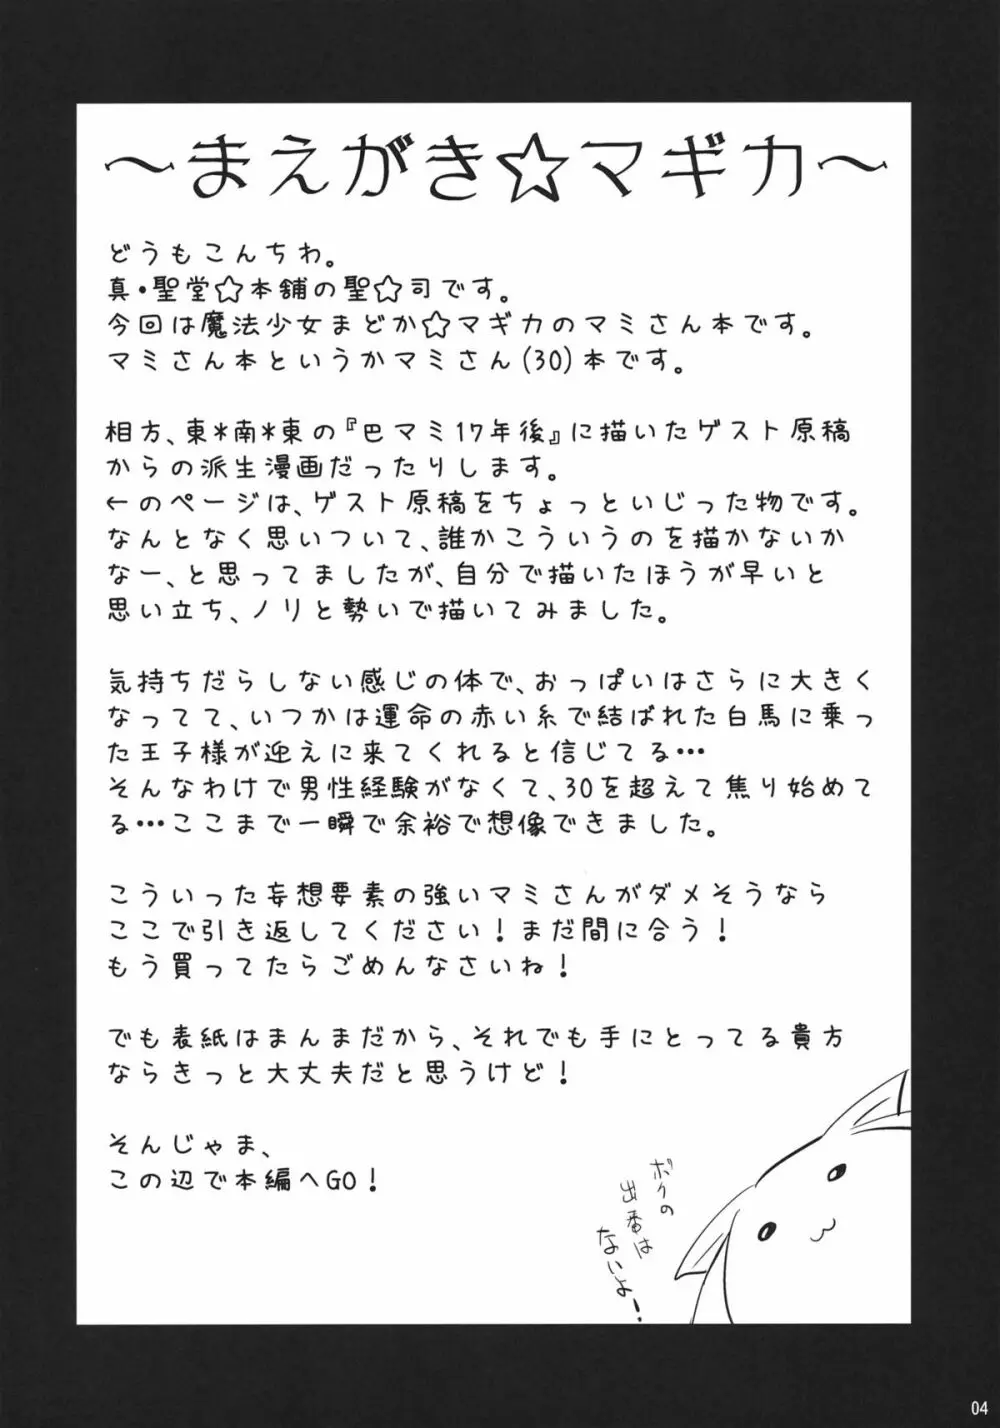 ～まえがき☆マギカ～
どうもこんちわ。
真・聖堂☆本舗の聖☆司です。
今回は魔法少女まどか☆マギカのマミさん本です。
マミさん本というかマミさん(30)本です。
相方、東*南*東の『巴マミ17年後』に描いたゲスト原稿
からの派生漫画だったりします。
←のページは、ゲスト原稿をちょっといじった物です。
なんとなく思いついて、誰かこういうのを描かないか
なー、と思ってましたが、自分で描いたほうが早いと
思い立ち、ノリと勢いで描いてみました。
気持ちだらしない感じの体で、おっぱいはさらに大きく
なってて、いつかは運命の赤い糸で結ばれた白馬に乗っ
た王子様が迎えに来てくれると信じてる…
そんなわけで男性経験がなくて、30を超えて焦り始めて
る…ここまで一瞬で余裕で想像できました。
こういった妄想要素の強いマミさんがダメそうなら
ここで引き返してください！まだ間に合う！
もう買ってたらごめんなさいね！
でも表紙はまんまだから、それでも手にとってる貴方
ならきっと大丈夫だと思うけど！
そんじゃま、
この辺で本編へGO！
ボクの
出番は
ないよー！
04